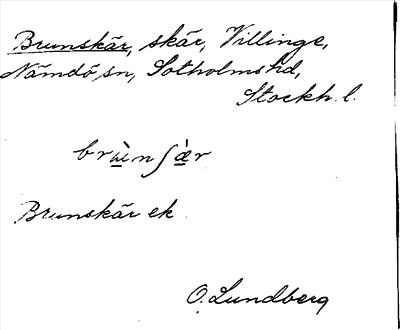 Brunskär, skär, Villinge,
Nämdö sn, Sotholms hd,
Stockh. l.
brùnʃæ̀r
Brunskär ek.
O. Lundberg